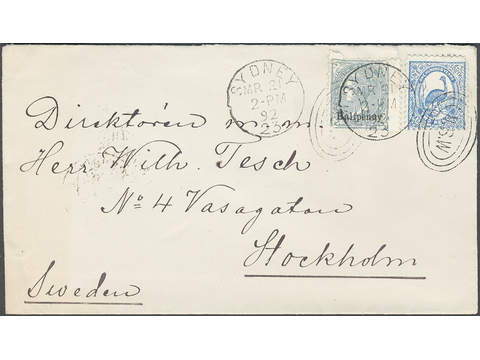 SYDNEY
MR 21
2-PM
92
23
SYDNEY
23
Halfpenny
NSW
Direktören m. m.
Herr Wilh. Tesch
No 4 Vasagatan
Stockholm
Sweden